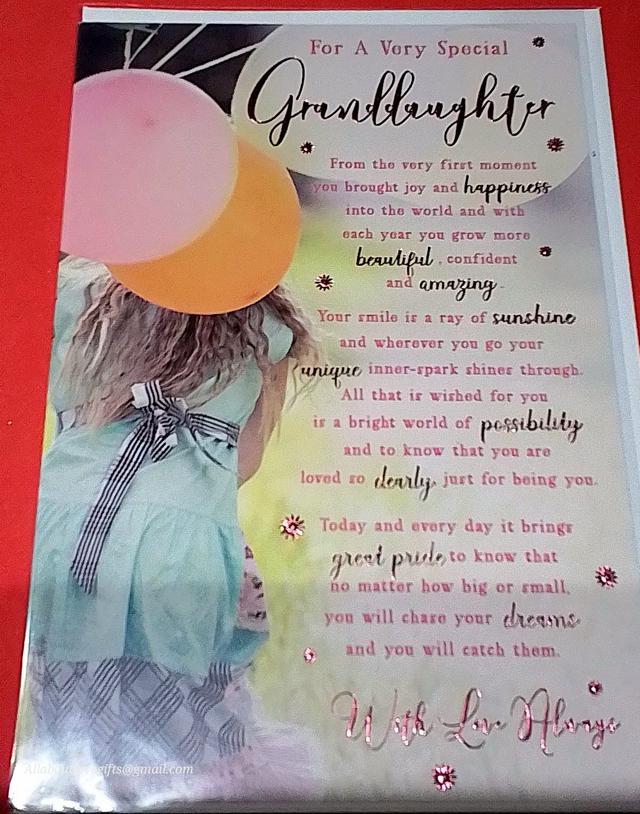 For A Very Special
Granddaughter
From the very first moment
you brought joy and happiness
into the world and with
each year you grow more
beautiful, confident
and amazing.
Your smile is a ray of sunshine
and wherever you go your
unique inner-spark shines through.
All that is wished for you
is a bright world of possibility
and to know that you are
loved so dearly, just for being you.
Today and every day it brings
great pride to know that
no matter how big or small,
you will chase your dreams
and you will catch them.
With Love Always